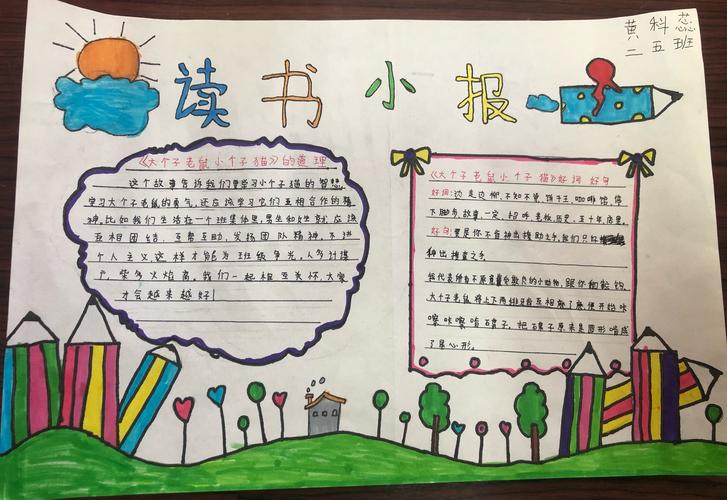 黄科蕊
二五班
读书小报
《大个子老鼠小个子猫》的道理
这个故事告诉我们要学习小个子猫的智慧
学习大个子老鼠的勇气,还应该学习它们互相合作的精
神。比如我们生活在一个班集体里,男生和女生就应该
互相团结、互帮互助、发扬团队精神,不进
个人主义这样才能为班级争光,人多计谋
广,柴多火焰高,我们一起相互关怀,大家
才会越来越好!
《大个子老鼠小个子猫》好词好句
好词:边走边聊、不知不觉、饼干王、咖啡馆、停
下脚步、故意、一定、招呼、老板、历史、五十年、店里。
好句:要是你不肯伸出援助之手,我们只好
种出援直之手。
大个子老鼠将上下两排牙齿互相磨了磨,便开始咔
嚓咔嚓啃石磨子,把石磨子原来是圆形啃成
了是心形。